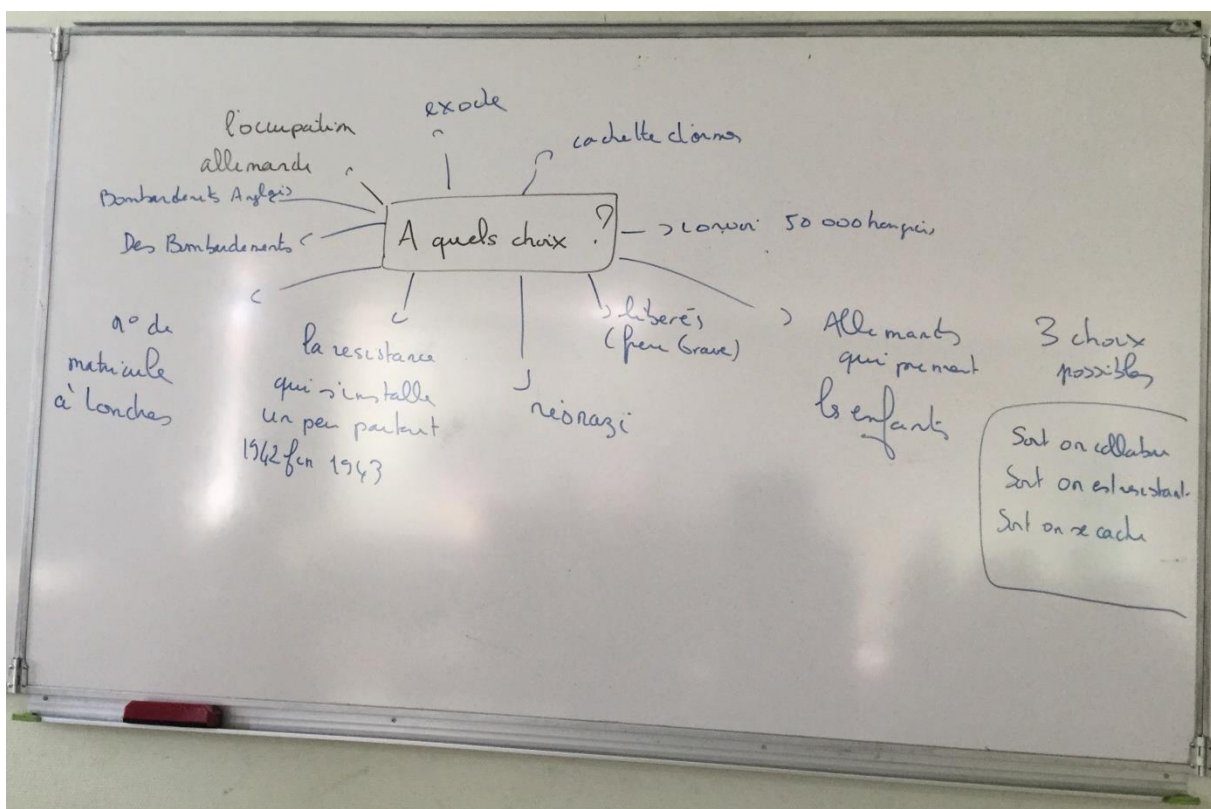 exode
l'occupation
allemande
cachette d'armes
Bombardements Anglais
Des Bombardements
A quels choix ?
convoi 50 000 hongrois
n° de
matricule
à Londres
la resistance
qui s'installe
un peu partout
1942 fin 1943
néonazi
libérés
Allemants
qui prennent
les enfants
3 choix
possibles
Soit on collabore
Soit on est resistant
Soit on se cache